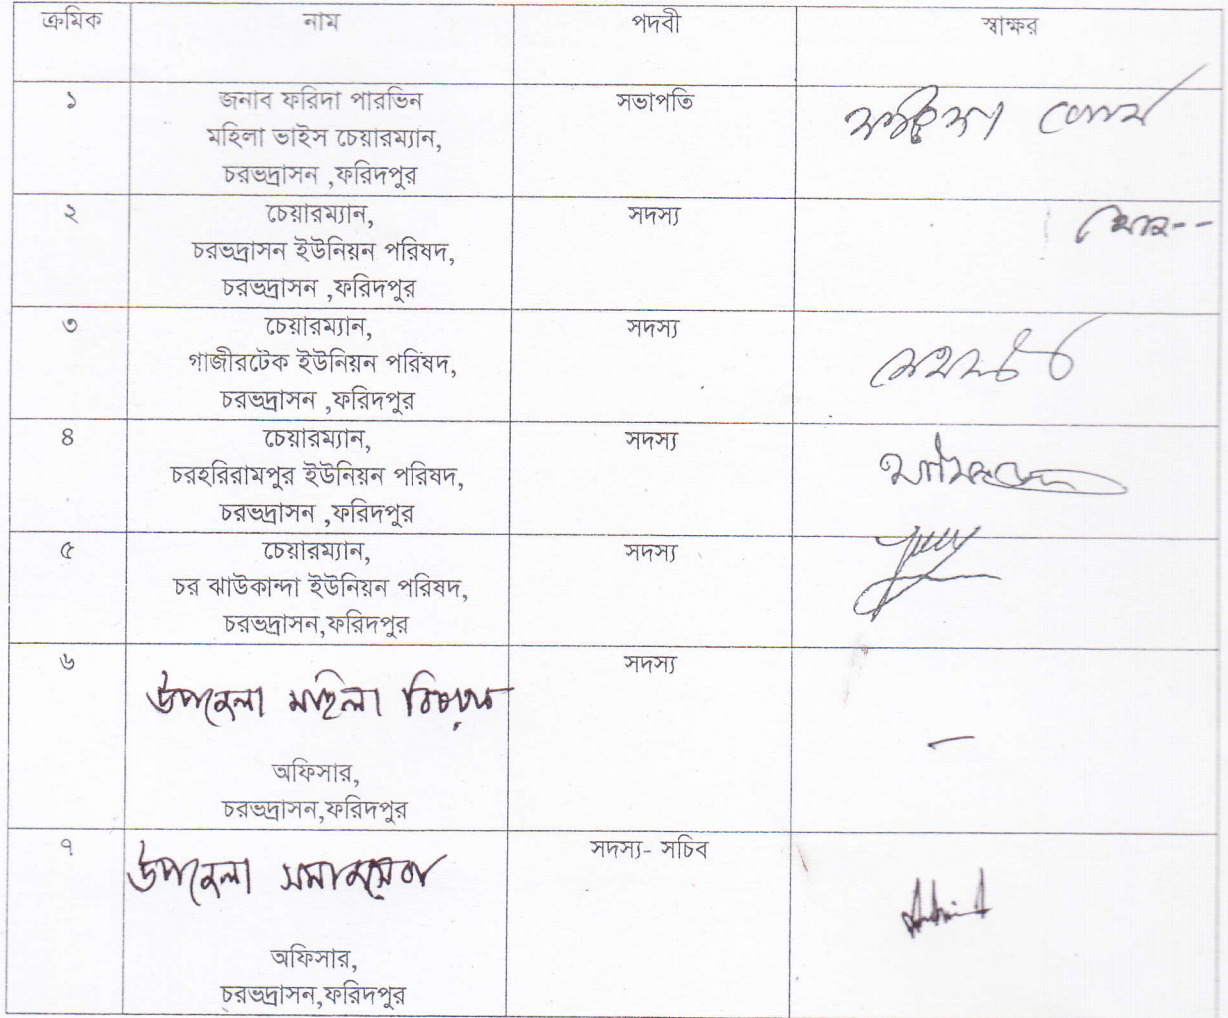 ক্রমিক নাম পদবী স্বাক্ষর
১ জনাব ফরিদা পারভিন সভাপতি
মহিলা ভাইস চেয়ারম্যান,
চরভদ্রাসন ,ফরিদপুর
২ চেয়ারম্যান, সদস্য
চরভদ্রাসন ইউনিয়ন পরিষদ,
চরভদ্রাসন ,ফরিদপুর
৩ চেয়ারম্যান, সদস্য
গাজীরটেক ইউনিয়ন পরিষদ,
চরভদ্রাসন ,ফরিদপুর
৪ চেয়ারম্যান, সদস্য
চরহরিরামপুর ইউনিয়ন পরিষদ,
চরভদ্রাসন ,ফরিদপুর
৫ চেয়ারম্যান, সদস্য
চর ঝাউকান্দা ইউনিয়ন পরিষদ,
চরভদ্রাসন,ফরিদপুর
৬ সদস্য
উপজেলা মহিলা বিষয়ক
অফিসার,
চরভদ্রাসন,ফরিদপুর
৭ সদস্য- সচিব
উপজেলা সমাজসেবা
অফিসার,
চরভদ্রাসন,ফরিদপুর